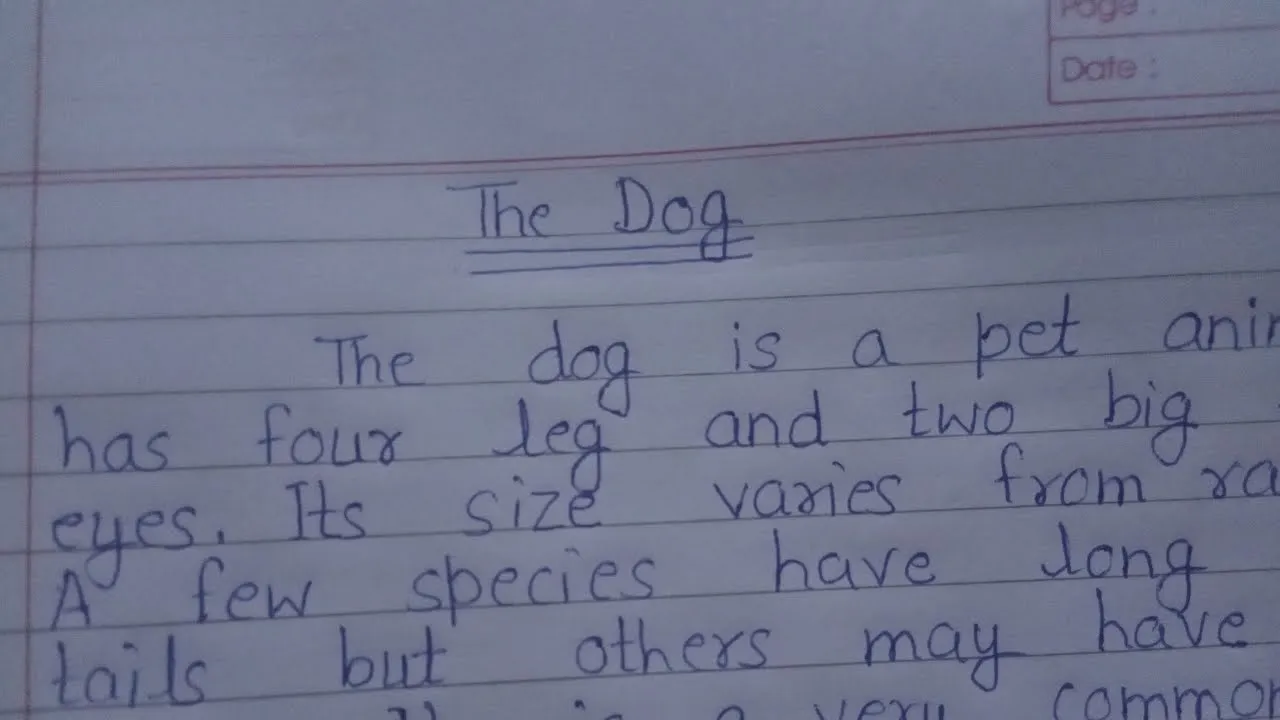 Page :
Date :
The Dog
The dog is a pet
has four leg and two big
eyes. Its size varies from
A few species have long
tails but others may have
is a very common